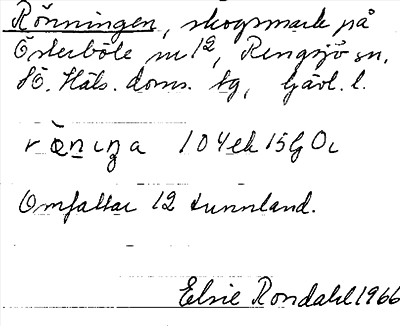 Rönningen, skogsmark på
Österböle nr 1², Rengsjö sn,
SÖ. Häls. doms. tg, Gävl. l.
rœ̀nıŋa 104ek15GOi
Omfattar 12 tunnland.
Elsie Rondahl 1966